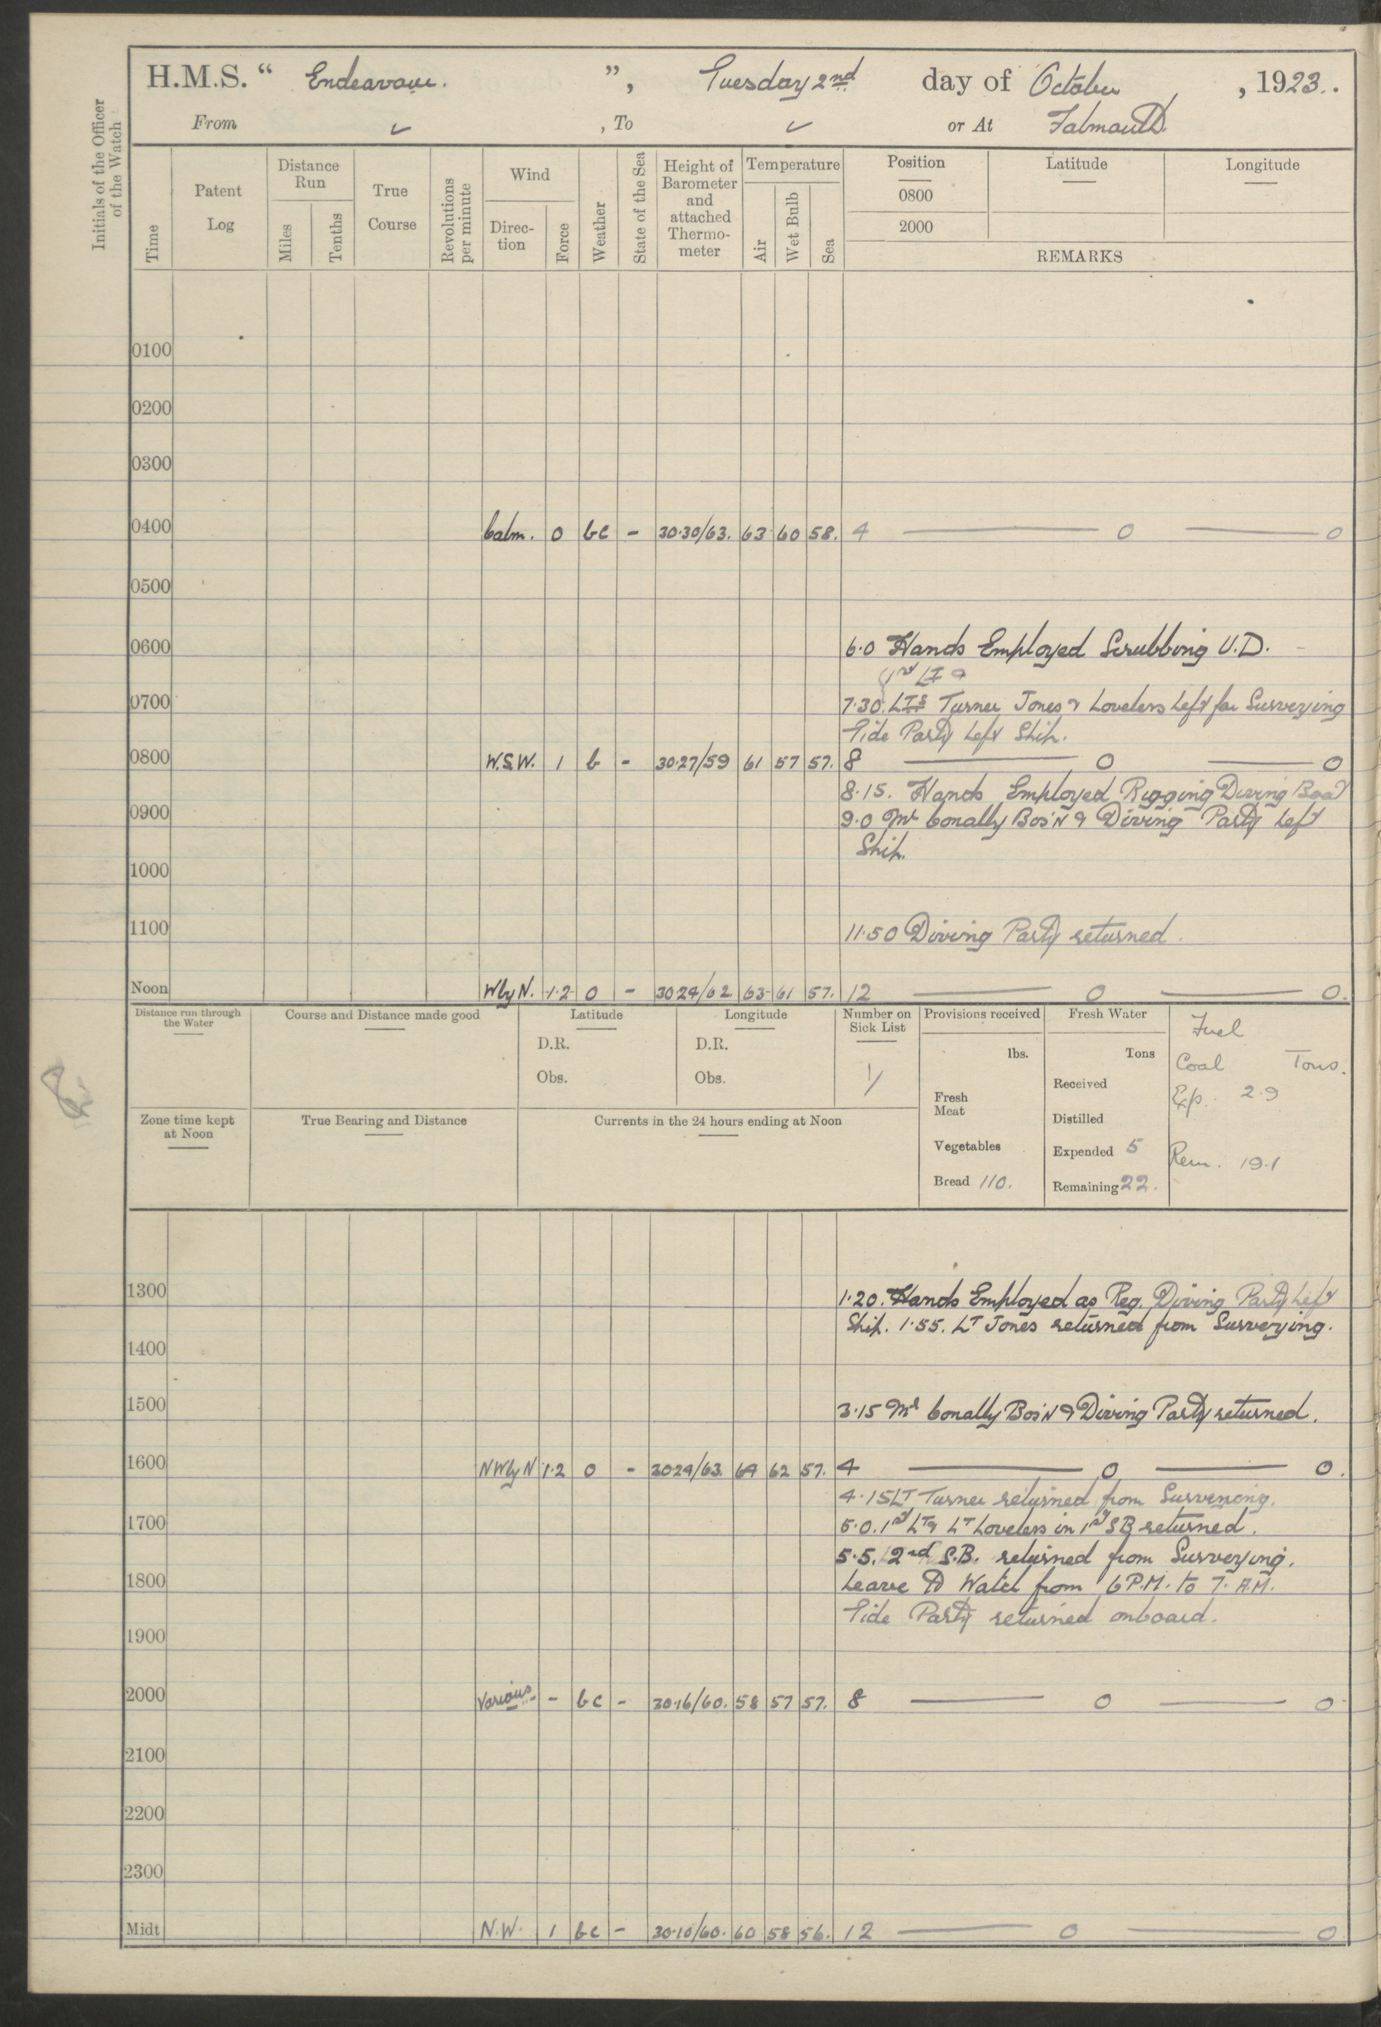 H.M.S. “ Endeavour. ”, Tuesday 2nd day of October , 1923..
From ✓ , To ✓ or At Falmouth
Initials of the Officer of the Watch
Time
Patent Log
Distance Run
Miles
Tenths
True Course
Revolutions per minute
Wind
Direction
Force
Weather
State of the Sea
Height of Barometer and attached Thermometer
Temperature
Air
Wet Bulb
Sea
Position
Latitude
Longitude
0800
2000
REMARKS
0100
0200
0300
0400 Calm. 0 bc - 30.30/63. 63 60 58. 4 — 0 — 0
0500
0600 6.0 Hands Employed Scrubbing U.D.
1st Lt &
0700 7.30. Lts Turner Jones & Loveless Left for Surveying
Tide Party Left Ship.
0800 W.S.W. 1 b - 30.27/59 61 57 57. 8 — 0 — 0
8.15. Hands Employed Rigging Diving Boat
0900 9.0 Mr Conally Bos'n & Diving Party Left
Ship.
1000
1100 11.50 Diving Party returned.
Noon W by N. 1.2 0 - 30.24/62 63 61 57. 12 — 0 — 0.
Distance run through the Water
Course and Distance made good
Latitude
D.R.
Obs.
Longitude
D.R.
Obs.
Number on Sick List
1/
Provisions received
lbs.
Fresh Meat
Vegetables
Bread 110.
Fresh Water
Tons
Received
Distilled
Expended 5
Remaining 22.
Fuel
Coal Tons.
Exp. 2.9
Rem. 19.1
Zone time kept at Noon
True Bearing and Distance
Currents in the 24 hours ending at Noon
1300 1.20. Hands Employed as Req. Diving Party Left
Ship. 1.55. Lt Jones returned from Surveying.
1400
1500 3.15 Mr Conally Bos'n & Diving Party returned.
1600 N W by N 1.2 0 - 30.24/63. 64 62 57. 4 — 0 — 0.
4.15 Lt Turner returned from Surveying.
1700 5.0. 1st Lt & Lt Loveless in 1st SB returned.
5.5. 2nd S.B. returned from Surveying.
1800 Leave to Watch from 6 P.M. to 7. A.M.
Tide Party returned onboard.
1900
2000 Various - bc - 30.16/60. 58 57 57. 8 — 0 — 0
2100
2200
2300
Midt N.W. 1 bc - 30.10/60. 60 58 56. 12 — 0 — 0